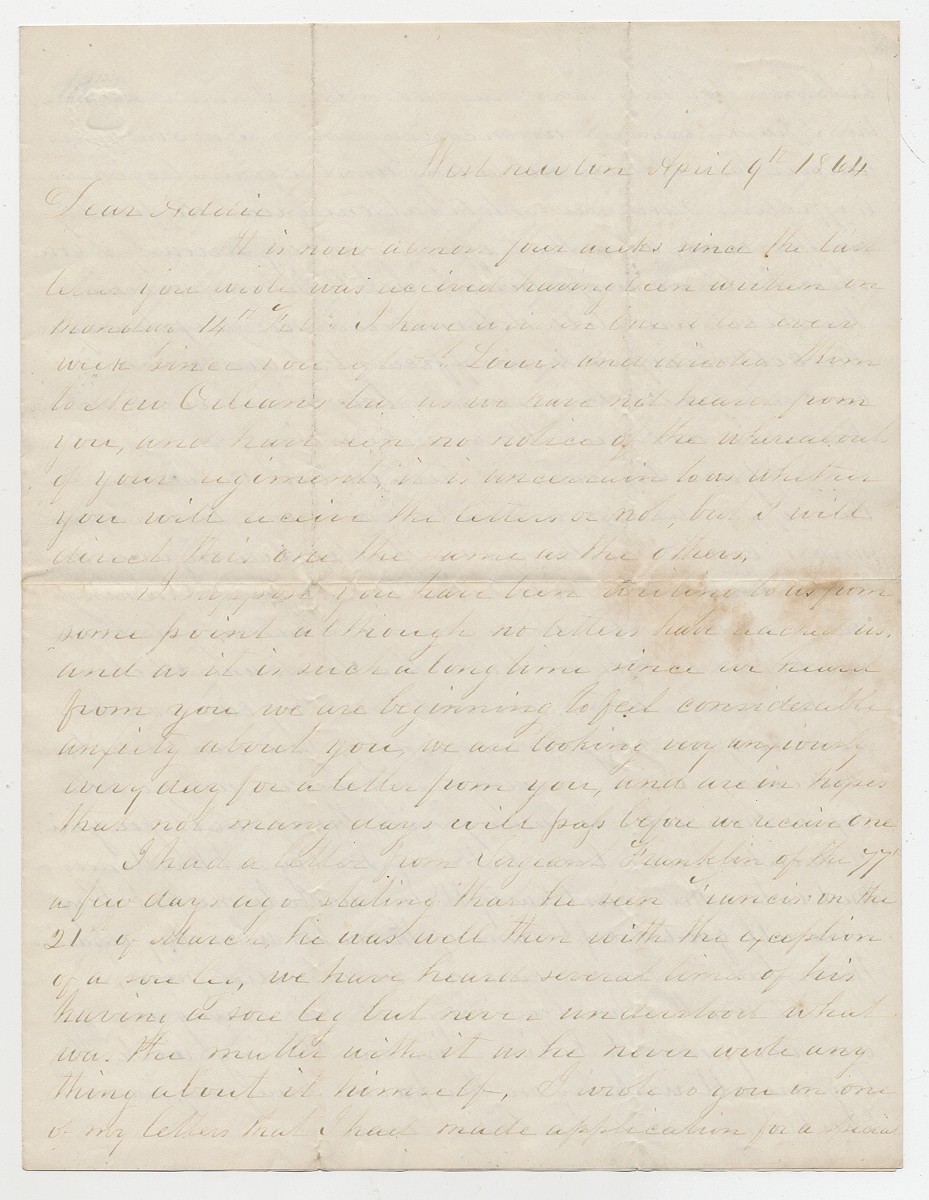 West newton April 9th 1864
Dear Addie
It is now almost four weeks since the last
letter you wrote was received having been written on
monday 14th Feb. I have written one letter every
week since you left St. Louis and directed them
to New Orleans but as we have not heard from
you, and have seen no notice of the whereabout
of your regiment, it is uncertain to us whether
you will receive the letters or not, but i will
direct this one the same as the others.
I suppose you have been writing to us from
some point although no letters have reached us,
and as it is such a long time since we heard
from you we are beginning to feel considerable
anxiety about you, we are looking very anxiously
every day for a letter from you, and are in hopes
that not many days will pass before we receive one
I had a letter from Sergeant Franklin of the 77th
a few days ago stating that he seen Francis on the
21st of March, he was well then with the exception
of a sore leg, we have heard several times of his
having a sore leg but never understood what
was the matter with it as he never wrote any
thing about it himself, I wrote to you in one
of my letters that I had made application for a